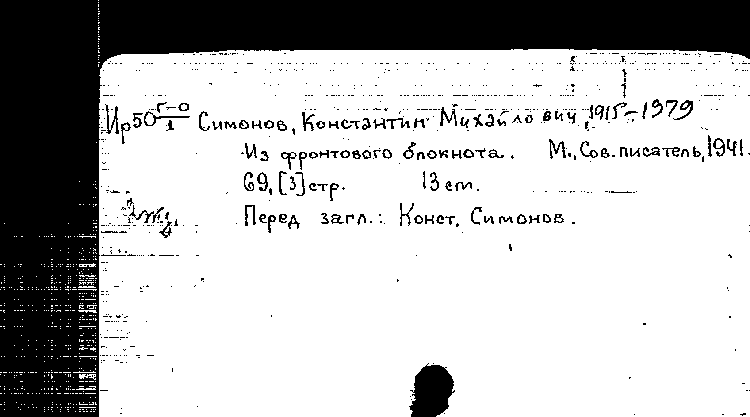 Ир50 г-о/1 Симонов, Константин Михайлович, 1915-1979
Из фронтового блокнота. М., Сов. писатель, 1941.
69, [3] стр. 13 см.
Перед загл.: Конст. Симонов.